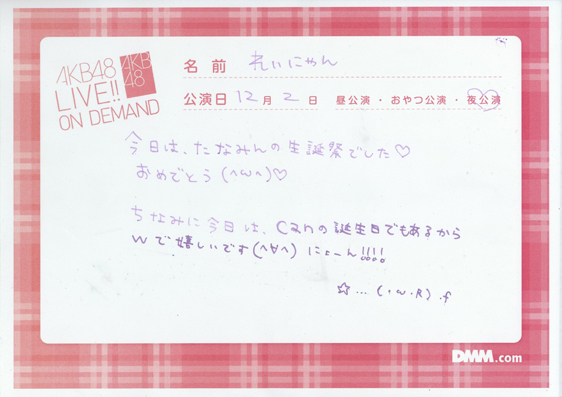 AKB48
LIVE!!
ON DEMAND
AKB
48
名前 れいにゃん
公演日 12月2日 昼公演・おやつ公演・夜公演
今日は、たなみんの生誕祭でした♡
おめでとう(^ω^)♡
ちなみに今日は、Canの誕生日でもあるから
Wで嬉しいです(^∀^) にょーん!!!!
☆...(・ω・R).f
DMM.com